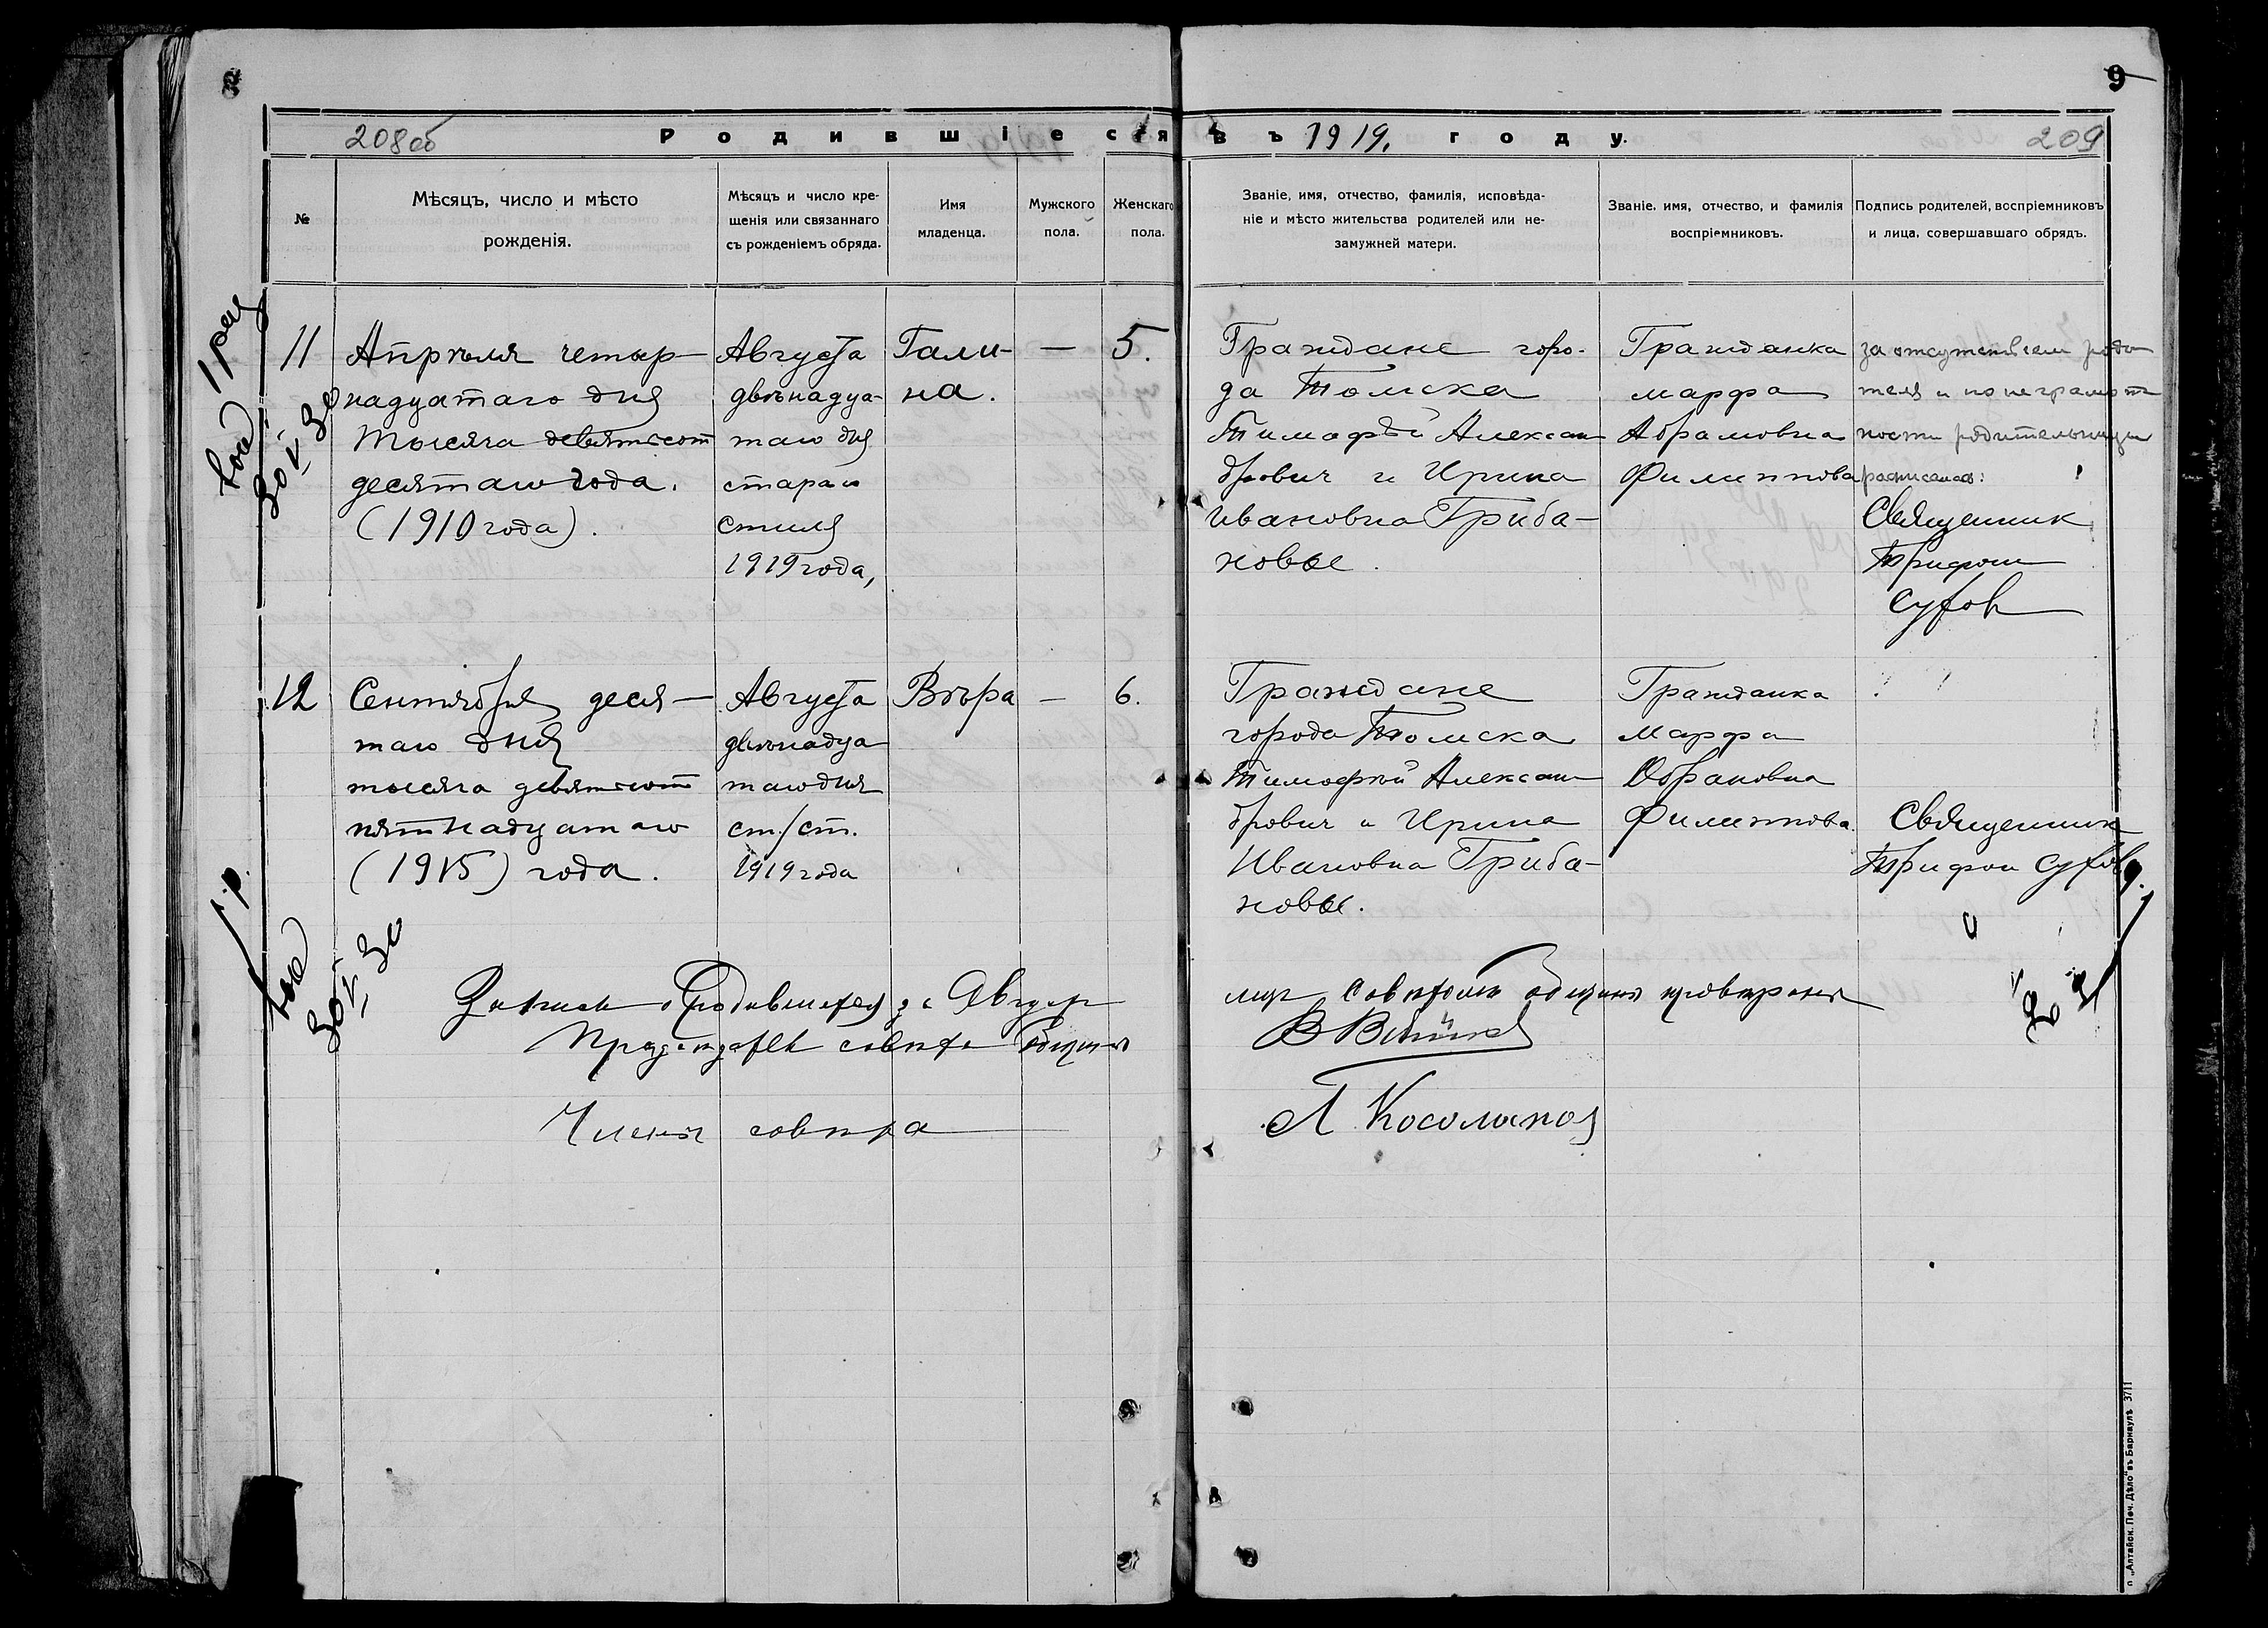 8
9
208об
Родившіеся
въ 1919. году.
209
№
Мѣсяцъ, число и мѣсто
рожденія.
Мѣсяцъ и число кре-
щенія или связаннаго
съ рожденіемъ обряда.
Имя
младенца.
Мужского
пола.
Женскаго
пола.
Званіе, имя, отчество, фамилія, исповѣда-
ніе и мѣсто жительства родителей или не-
замужней матери.
Званіе, имя, отчество, и фамилія
воспріемниковъ.
Подпись родителей, воспріемниковъ
и лица, совершавшаго обрядъ.
11
Апрѣля четыр-
надцатаго дня
тысяча девятьсот
десятаго года.
(1910 года).
Августа
двѣнадца-
таго дня
стараго
стиля
1919 года,
Гали-
на.
—
5.
Граждане горо-
да Томска
Тимофѣй Алексан
дрович и Ирина
Ивановна Гриба-
новы.
Гражданка
марфа
Абрамовна
Филиппова
за отсутствіем роди
теля и по неграмот
ности родительницы
расписался:
Священник
Трифон
Сухов
12
Сентября деся-
таго дня
тысяча девятьсот
пятнадцатаго
(1915) года.
Августа
двѣнадца
таго дня
ст./ст.
1919 года
Вѣра
—
6.
Граждане
города Томска
Тимофѣй Алексан
дрович и Ирина
Ивановна Гриба-
новы.
Гражданка
Марфа
Абрамовна
Филиппова.
Священник
Трифон Сухов
Запись о родившихся за Август
мѣс Совѣтом общины провѣрена
Предсѣдатель совѣта общины
Члены совѣта
Л Косолапов
п „Алтайск. Печ. Дѣло" въ Барнаулѣ 3711